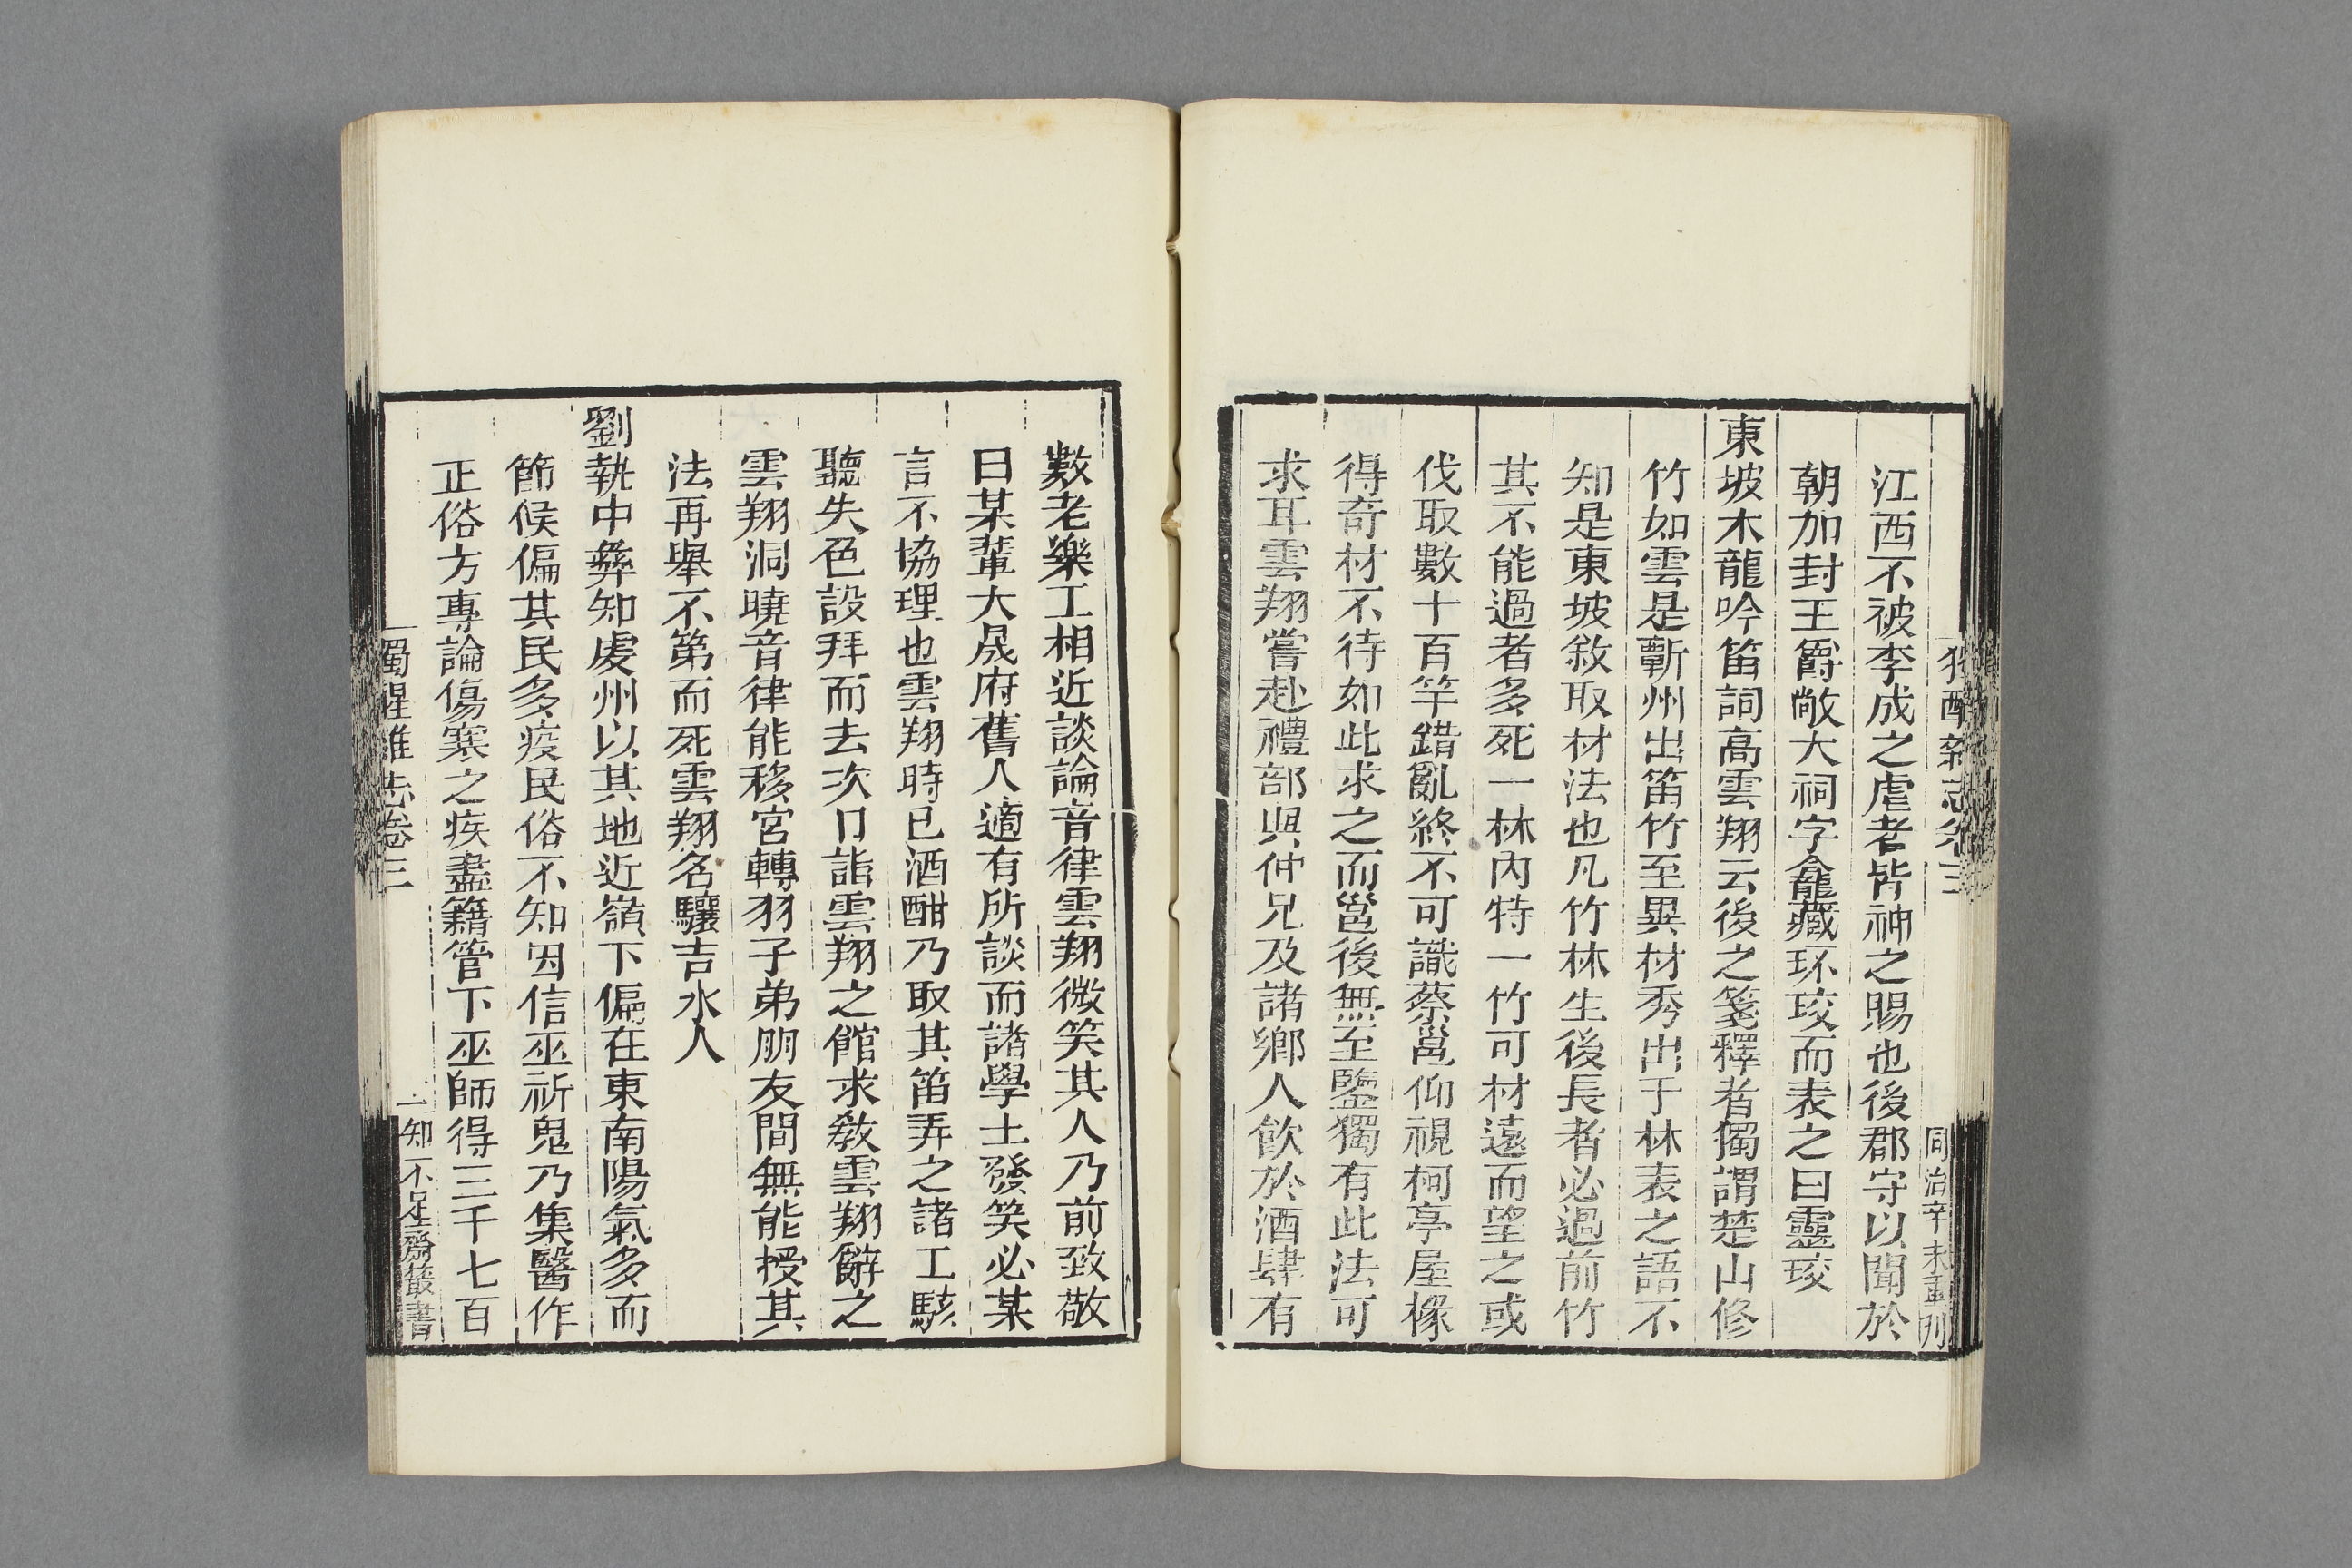 獨醒雜志卷三
同治辛未重刊
江西不被李成之虐者皆神之賜也後郡守以聞於
朝加封王爵敞大祠宇龕藏环珓而表之曰靈珓
東坡水龍吟笛詞高雲翔云後之箋釋者獨謂楚山修
竹如雲是蘄州出笛竹至異材秀出于林表之語不
知是東坡敘取材法也凡竹林生後長者必過前竹
其不能過者多死一林內特一竹可材遠而望之或
伐取數十百竿錯亂終不可識蔡邕仰視柯亭屋椽
得奇材不待如此求之而邕後無至鑒獨有此法可
求耳雲翔嘗赴禮部與仲兄及諸鄉人飲於酒肆有
數老樂工相近談論音律雲翔微笑其人乃前致敬
曰某輩大晟府舊人適有所談而諸學士發笑必某
言不協理也雲翔時已酒酣乃取其笛弄之諸工駭
聽失色設拜而去次日詣雲翔之館求教雲翔辭之
雲翔洞曉音律能移宮轉羽子弟朋友間無能授其
法再舉不第而死雲翔名驤吉水人
劉執中彝知虔州以其地近嶺下偏在東南陽氣多而
節候偏其民多疫民俗不知因信巫祈鬼乃集醫作
正俗方專論傷寒之疾盡籍管下巫師得三千七百
獨醒雜志卷三
二
知不足齋叢書